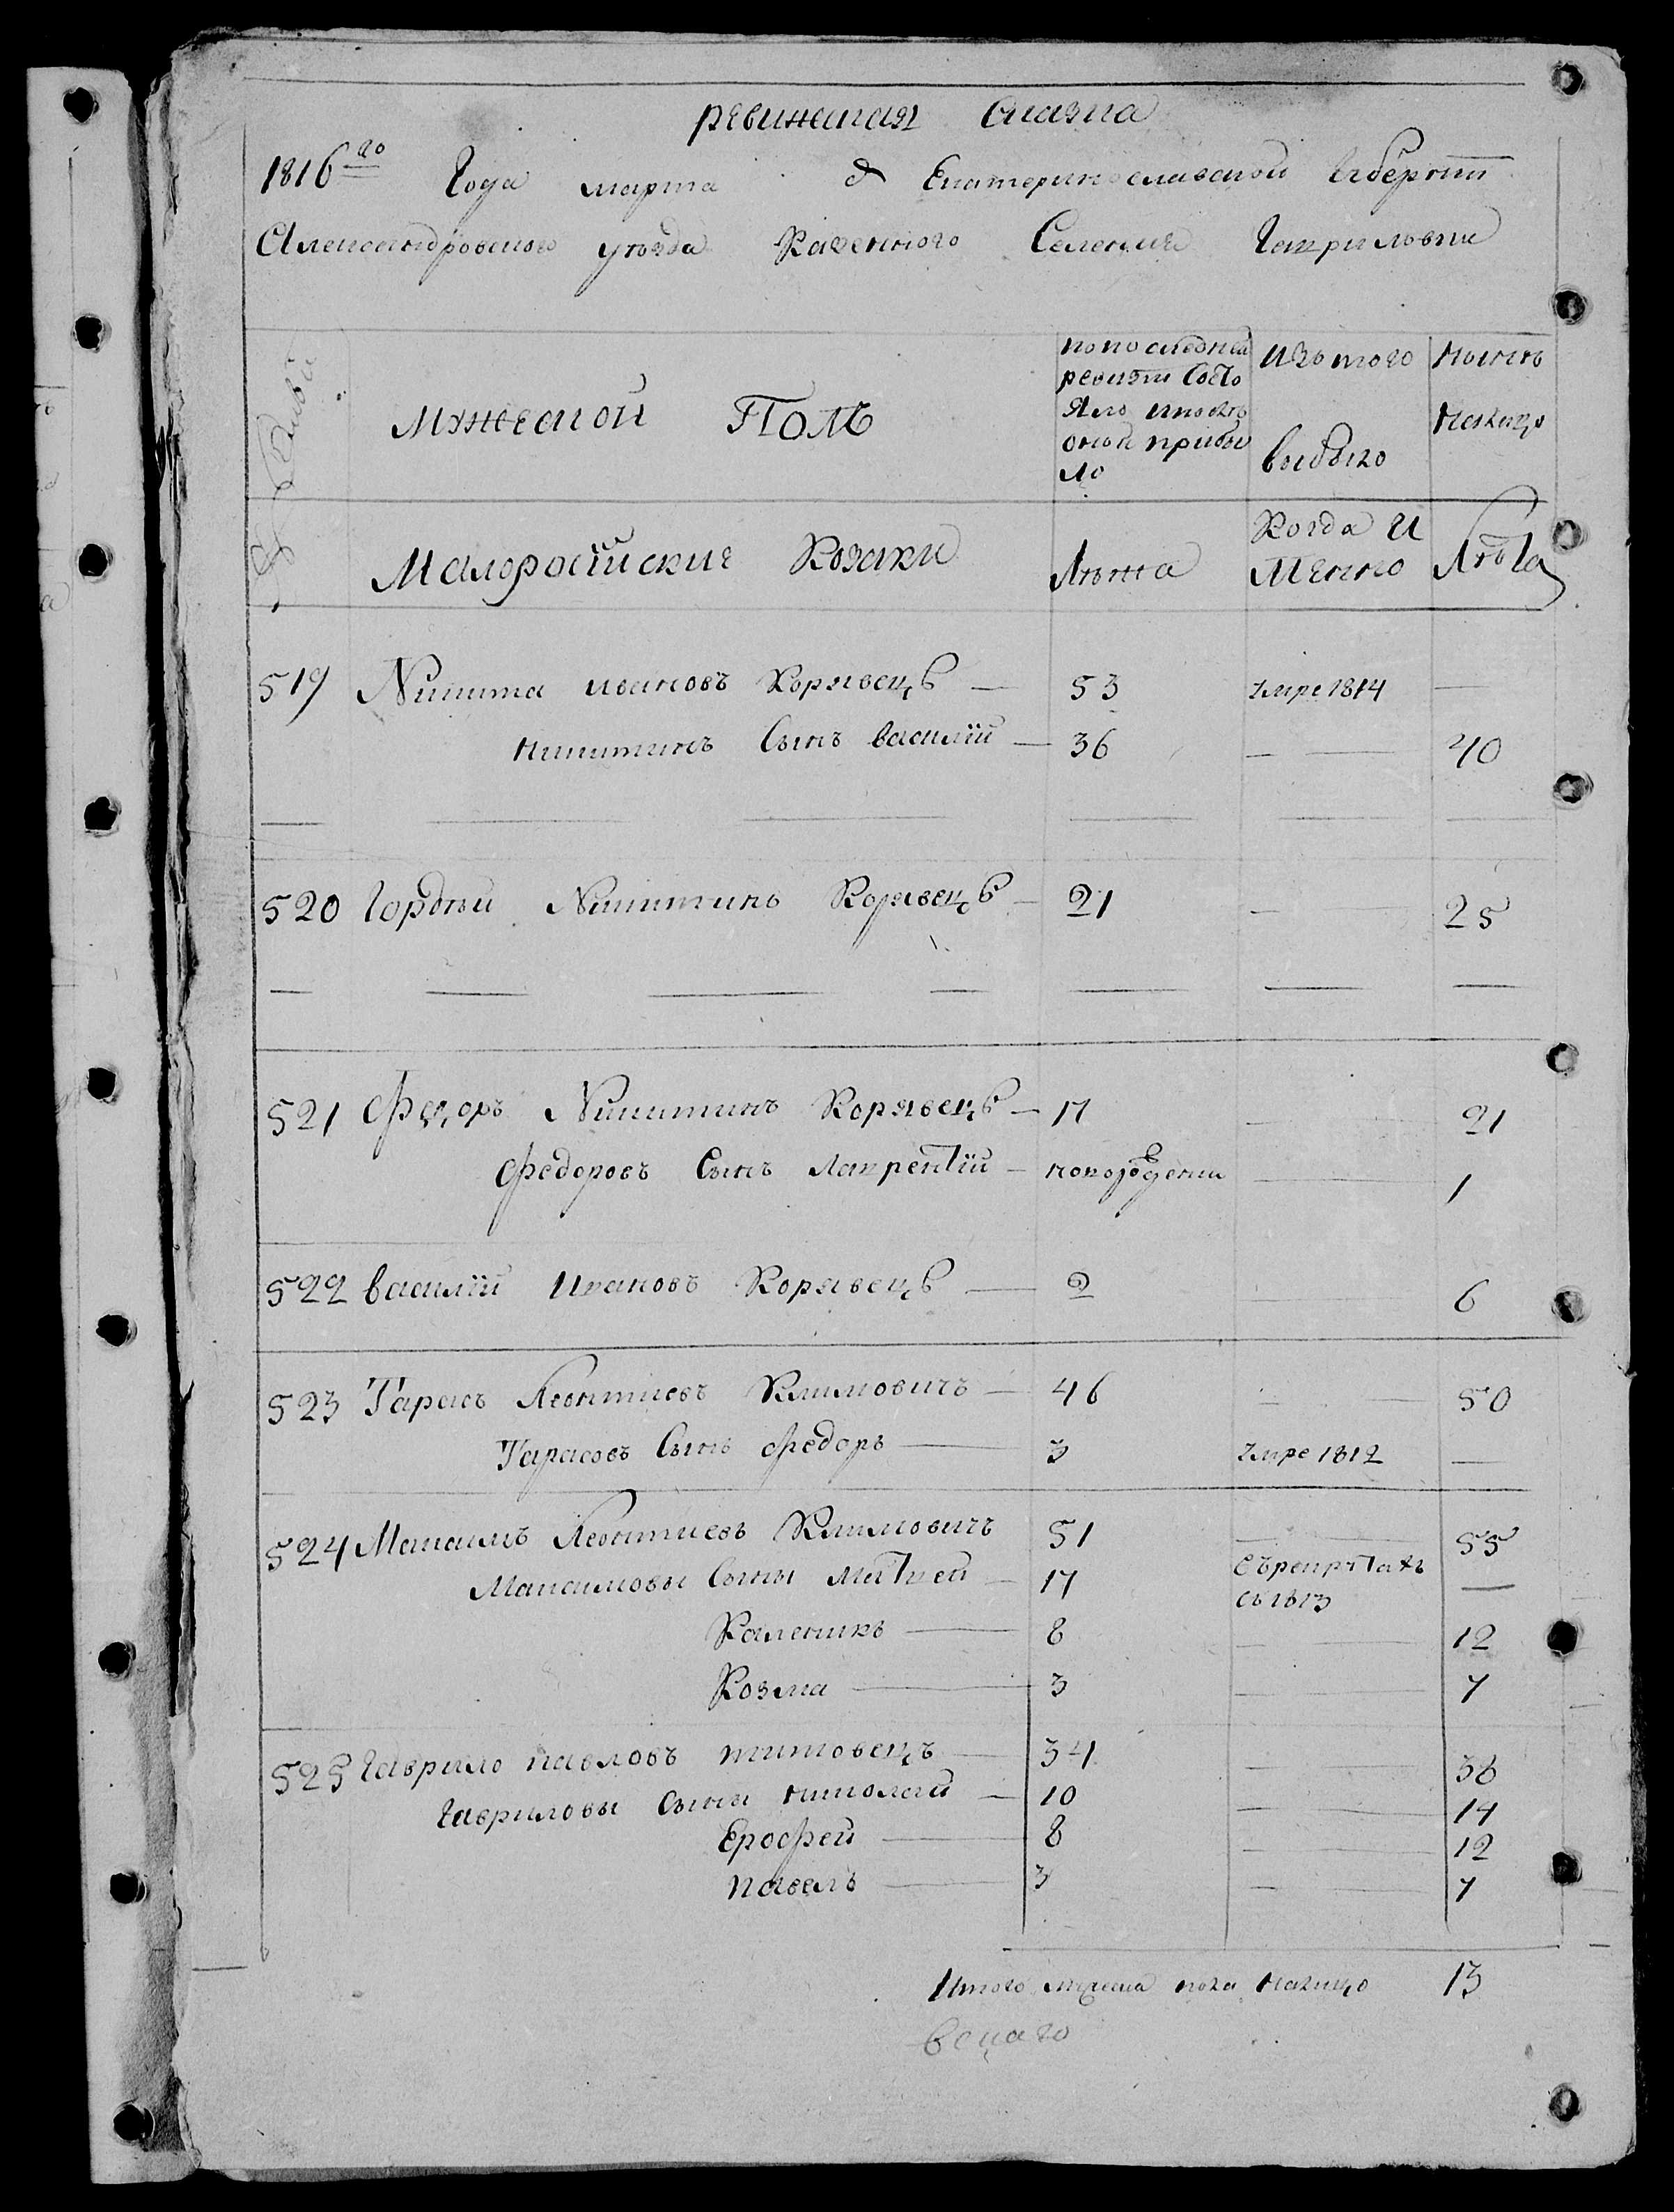 ревижская Сказка
1816го Года марта Екатеринославской Губернии
Александровского уѣзда Казенного Селения Гавриловки
мужеской Полъ
по последней ревизіи Состо яло и после оной прибы ло
изъ того выбыло
Нынѣ налицо
Малоросійские Козаки
Лѣта
Когда и Менно
Лѣта
519 Никита ивановъ Корявецъ — 53 Умре 1814 —
никитинъ Сынъ василій — 36 — 40
520 Гордѣй Никитинъ Корявецъ — 21 — 25
521 Федоръ Никитинъ Корявецъ — 17 — 21
Федоровъ Сынъ Лаврентій — новорожденни — 1
522 василій Ивановъ Корявецъ — 2 — 6
523 Тарасъ Леонтиевъ Климовичъ — 46 — 50
Тарасовъ Сынъ Федоръ — 3 Умре 1812 —
524 Максимъ Леонтиевъ Климовичъ 51 — 55
Максимовы Сыны Матвей — 17 въ рекрутахъ съ 1813 —
Каленикъ — 8 — 12
Козма — 3 — 7
525 Гаврило павловъ титовецъ — 34 — 38
Гавриловы Сыны николай — 10 — 14
Ерофей — 8 — 12
павелъ — 3 — 7
Итого мужеска пола налицо 13